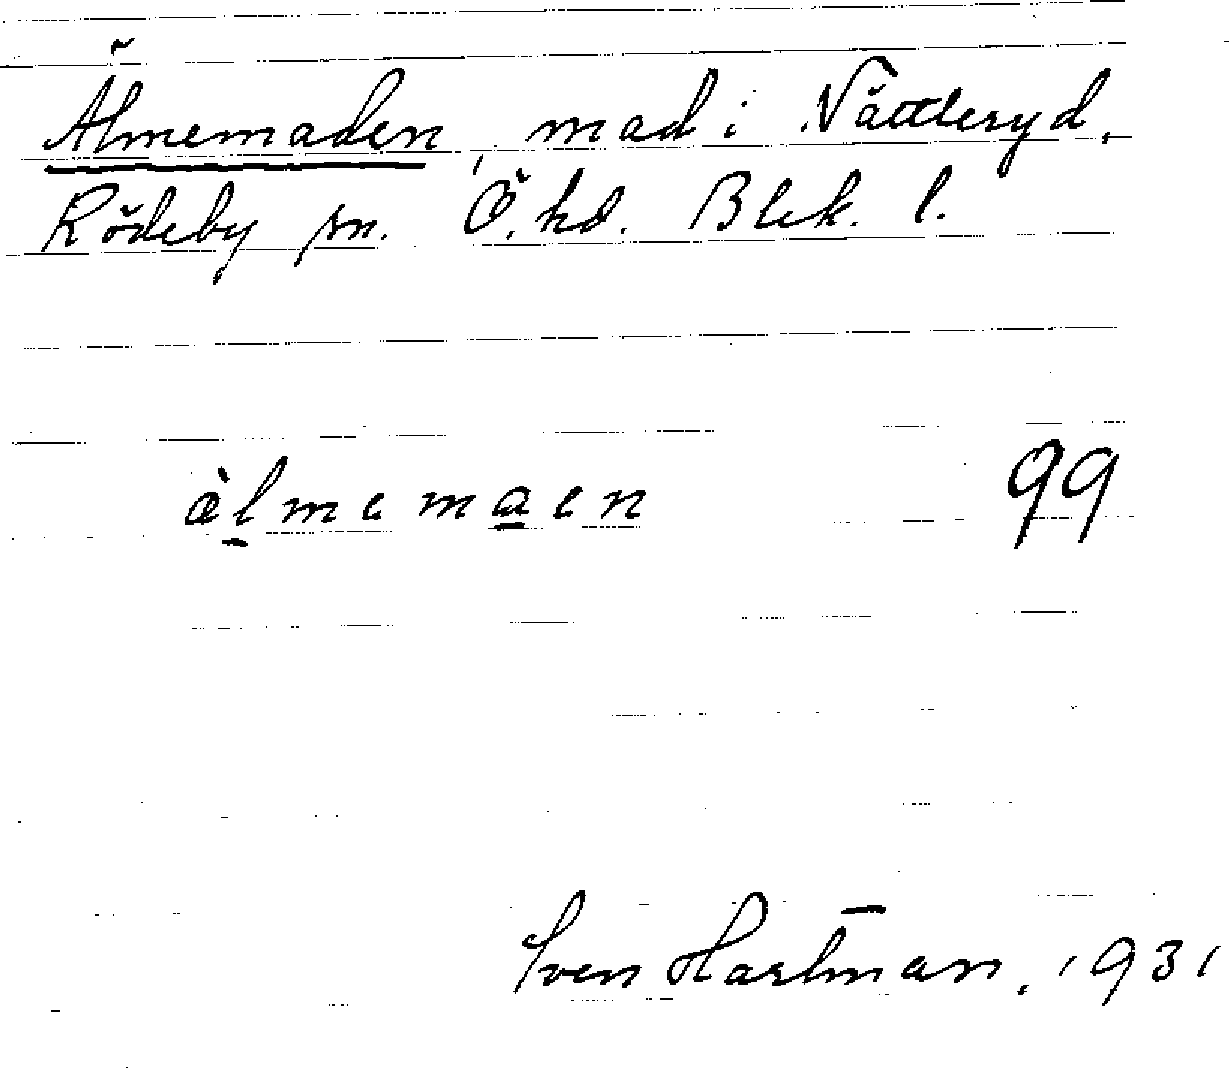 Älmemaden, mad i Nättleryd,
Rödeby sn. Ö. hd. Blek. l.
älmemaen 99
Sven Hartman, 1931